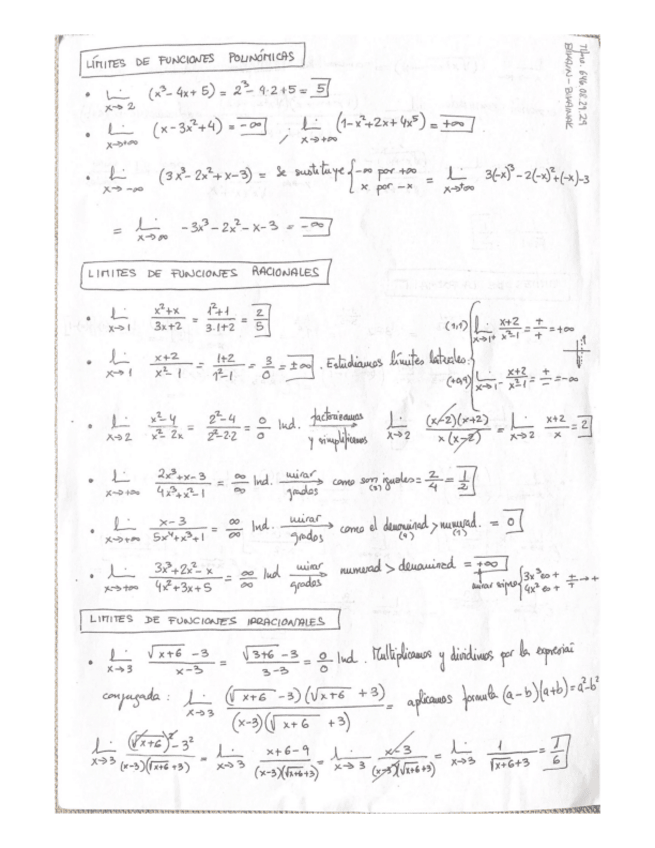 LÍMITES DE FUNCIONES POLINÓMICAS
Tfno. 646 08 29 29
• Lim x→2 (x³-4x+5) = 2³-4·2+5 = 5
• Lim x→+∞ (x-3x²+4) = -∞ ; Lim x→+∞ (1-x²+2x+4x⁵) = +∞
• Lim x→-∞ (3x³-2x²+x-3) = Se sustituye { -∞ por +∞ x por -x = Lim x→+∞ 3(-x)³-2(-x)²+(-x)-3
= Lim x→∞ -3x³-2x²-x-3 = -∞
LIMITES DE FUNCIONES RACIONALES
• Lim x→1 (x²+x)/(3x+2) = (1²+1)/(3·1+2) = 2/5
• Lim x→1 (x+2)/(x²-1) = (1+2)/(1²-1) = 3/0 = ±∞. Estudiamos límites laterales:
(1,1) Lim x→1+ (x+2)/(x²-1) = +/+ = +∞
(0,9) Lim x→1- (x+2)/(x²-1) = +/- = -∞
• Lim x→2 (x²-4)/(x²-2x) = (2²-4)/(2²-2·2) = 0/0 Ind. factorizamos y simplificamos → Lim x→2 (x-2)(x+2)/x(x-2) = Lim x→2 (x+2)/x = 2
• Lim x→+∞ (2x³+x-3)/(4x³+x²-1) = ∞/∞ Ind. mirar grados → como son iguales (3) = 2/4 = 1/2
• Lim x→+∞ (x-3)/(5x⁴+x³+1) = ∞/∞ Ind. mirar grados → como el denominad (4) > numerad. (1) = 0
• Lim x→+∞ (3x³+2x²-x)/(4x²+3x+5) = ∞/∞ Ind mirar grados → numerad > denominad = +∞
mirar signo { 3x³ es + 4x² es + +/+ → +
LIMITES DE FUNCIONES IRRACIONALES
• Lim x→3 (√x+6 -3)/(x-3) = (√3+6 -3)/(3-3) = 0/0 Ind. Multiplicamos y dividimos por la expresión
conjugada: Lim x→3 (√x+6 -3)(√x+6 +3)/(x-3)(√x+6 +3) = aplicamos formula (a-b)(a+b)=a²-b²
Lim x→3 ((√x+6)²-3²)/(x-3)(√x+6+3) = Lim x→3 (x+6-9)/(x-3)(√x+6+3) = Lim x→3 (x-3)/(x-3)(√x+6+3) = Lim x→3 1/(√x+6+3) = 1/6